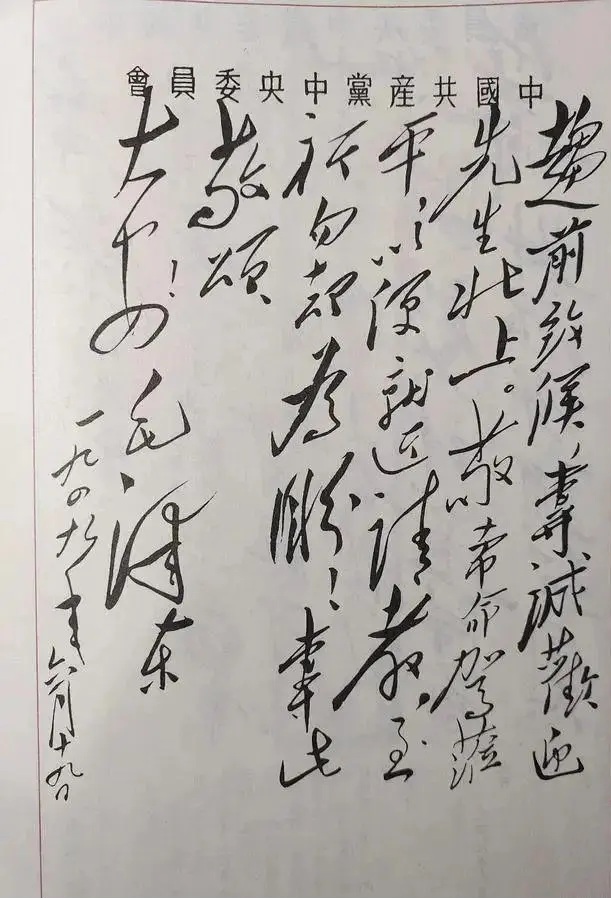 中國共產黨中央委員會
趨前致候，專誠歡迎
先生北上。敬希命駕蒞
平，以便就近請教，至
祈勿却為盼！專此
敬頌
大安！
毛澤東
一九四九年六月十九日